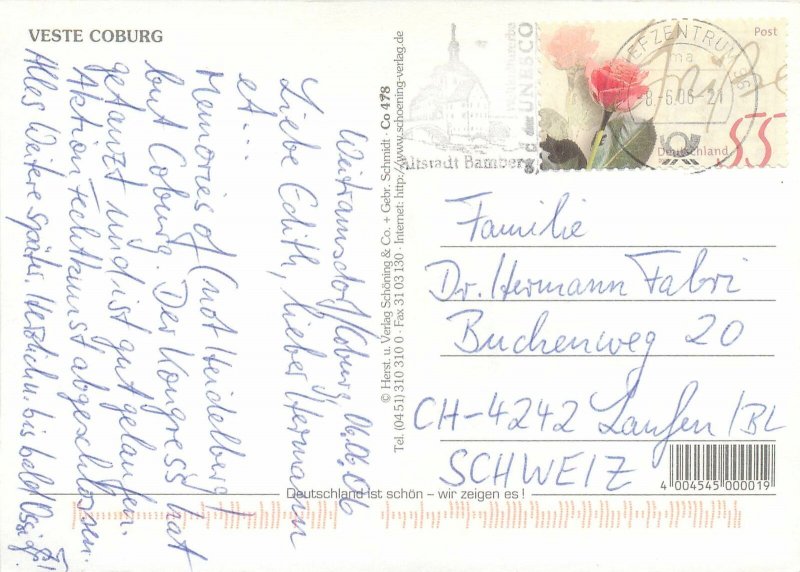 VESTE COBURG
Weitramsdorf/Coburg, 06.06.06
Liebe Edith, lieber Hermann
et...
Memories of (not Heidelberg)
but Coburg. Der Kongress hat
getanzt und ist gut gelaufen.
Aktion Fechtkunst abgeschlossen.
Alles Weitere später. Herzlich u. bis bald
© Herst. u. Verlag Schöning & Co. + Gebr. Schmidt · Co 478
Tel. (04 51) 310 310 0 · Fax 31 03 130 · Internet: http://www.schoening-verlag.de
Altstadt Bamberg
UNESCO
BRIEFZENTRUM 96
ma
-8.-6.06-21
Post
Deutschland
55
Familie
Dr. Hermann Fabri
Buchenweg 20
CH-4242 Laufen/BL
SCHWEIZ
4 004545 000019
Deutschland ist schön – wir zeigen es !